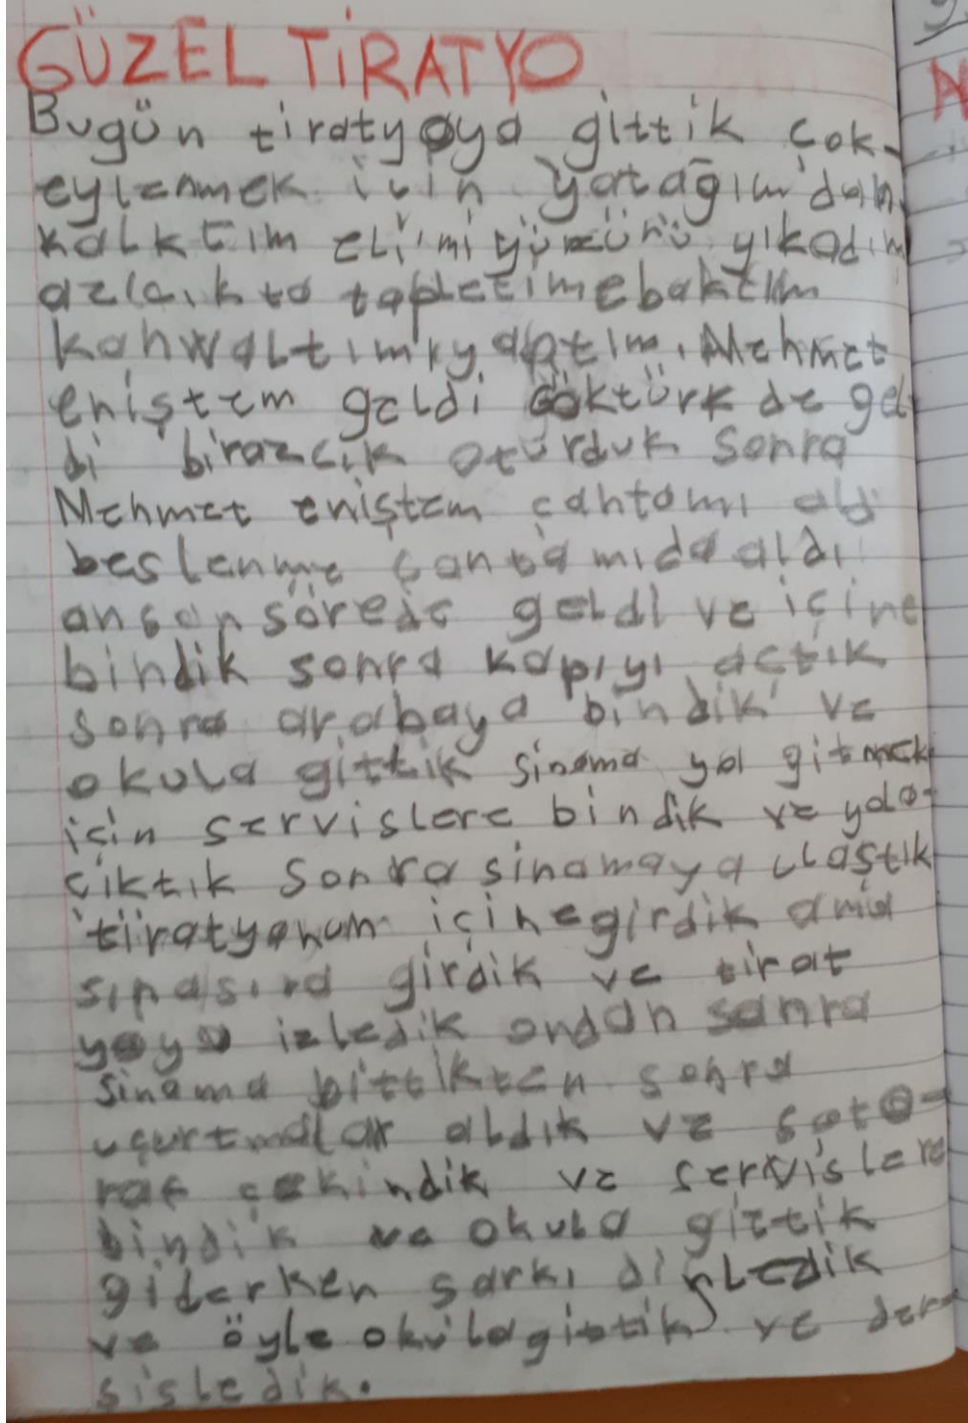 GÜZEL TİRATYO
Bugün tiratyoya gittik çok
eylenmek için yatağım'dan
kalktım elimi yüzünü yıkadım
azıcık ta tapletimebaktım
kahwaltımıyaptım. Mehmet
eniştem geldi Göktürk de gel
di birazcık oturduk sonra
Mehmet eniştem çahtamı aldı
beslenme çantamıda aldı
ansansörede geldi ve içine
bindik sonra kapıyı actık
sonra arabaya bindik ve
okula gittik sinama ya gitmek
için servislere bindik ve yola
çiktık sonra sinamaya ulaştık
tiratyonun içinegirdik ama
sırasıra girdik ve tirat
yoya izledik ondan sanra
sinama bittikten sonra
uçurtmalar aldık ve foto-
raf çekindik ve servislere
bindik ve okula gittik
giderken şarkı dinledik
ve öyle okulagittik ve der
sisledik.